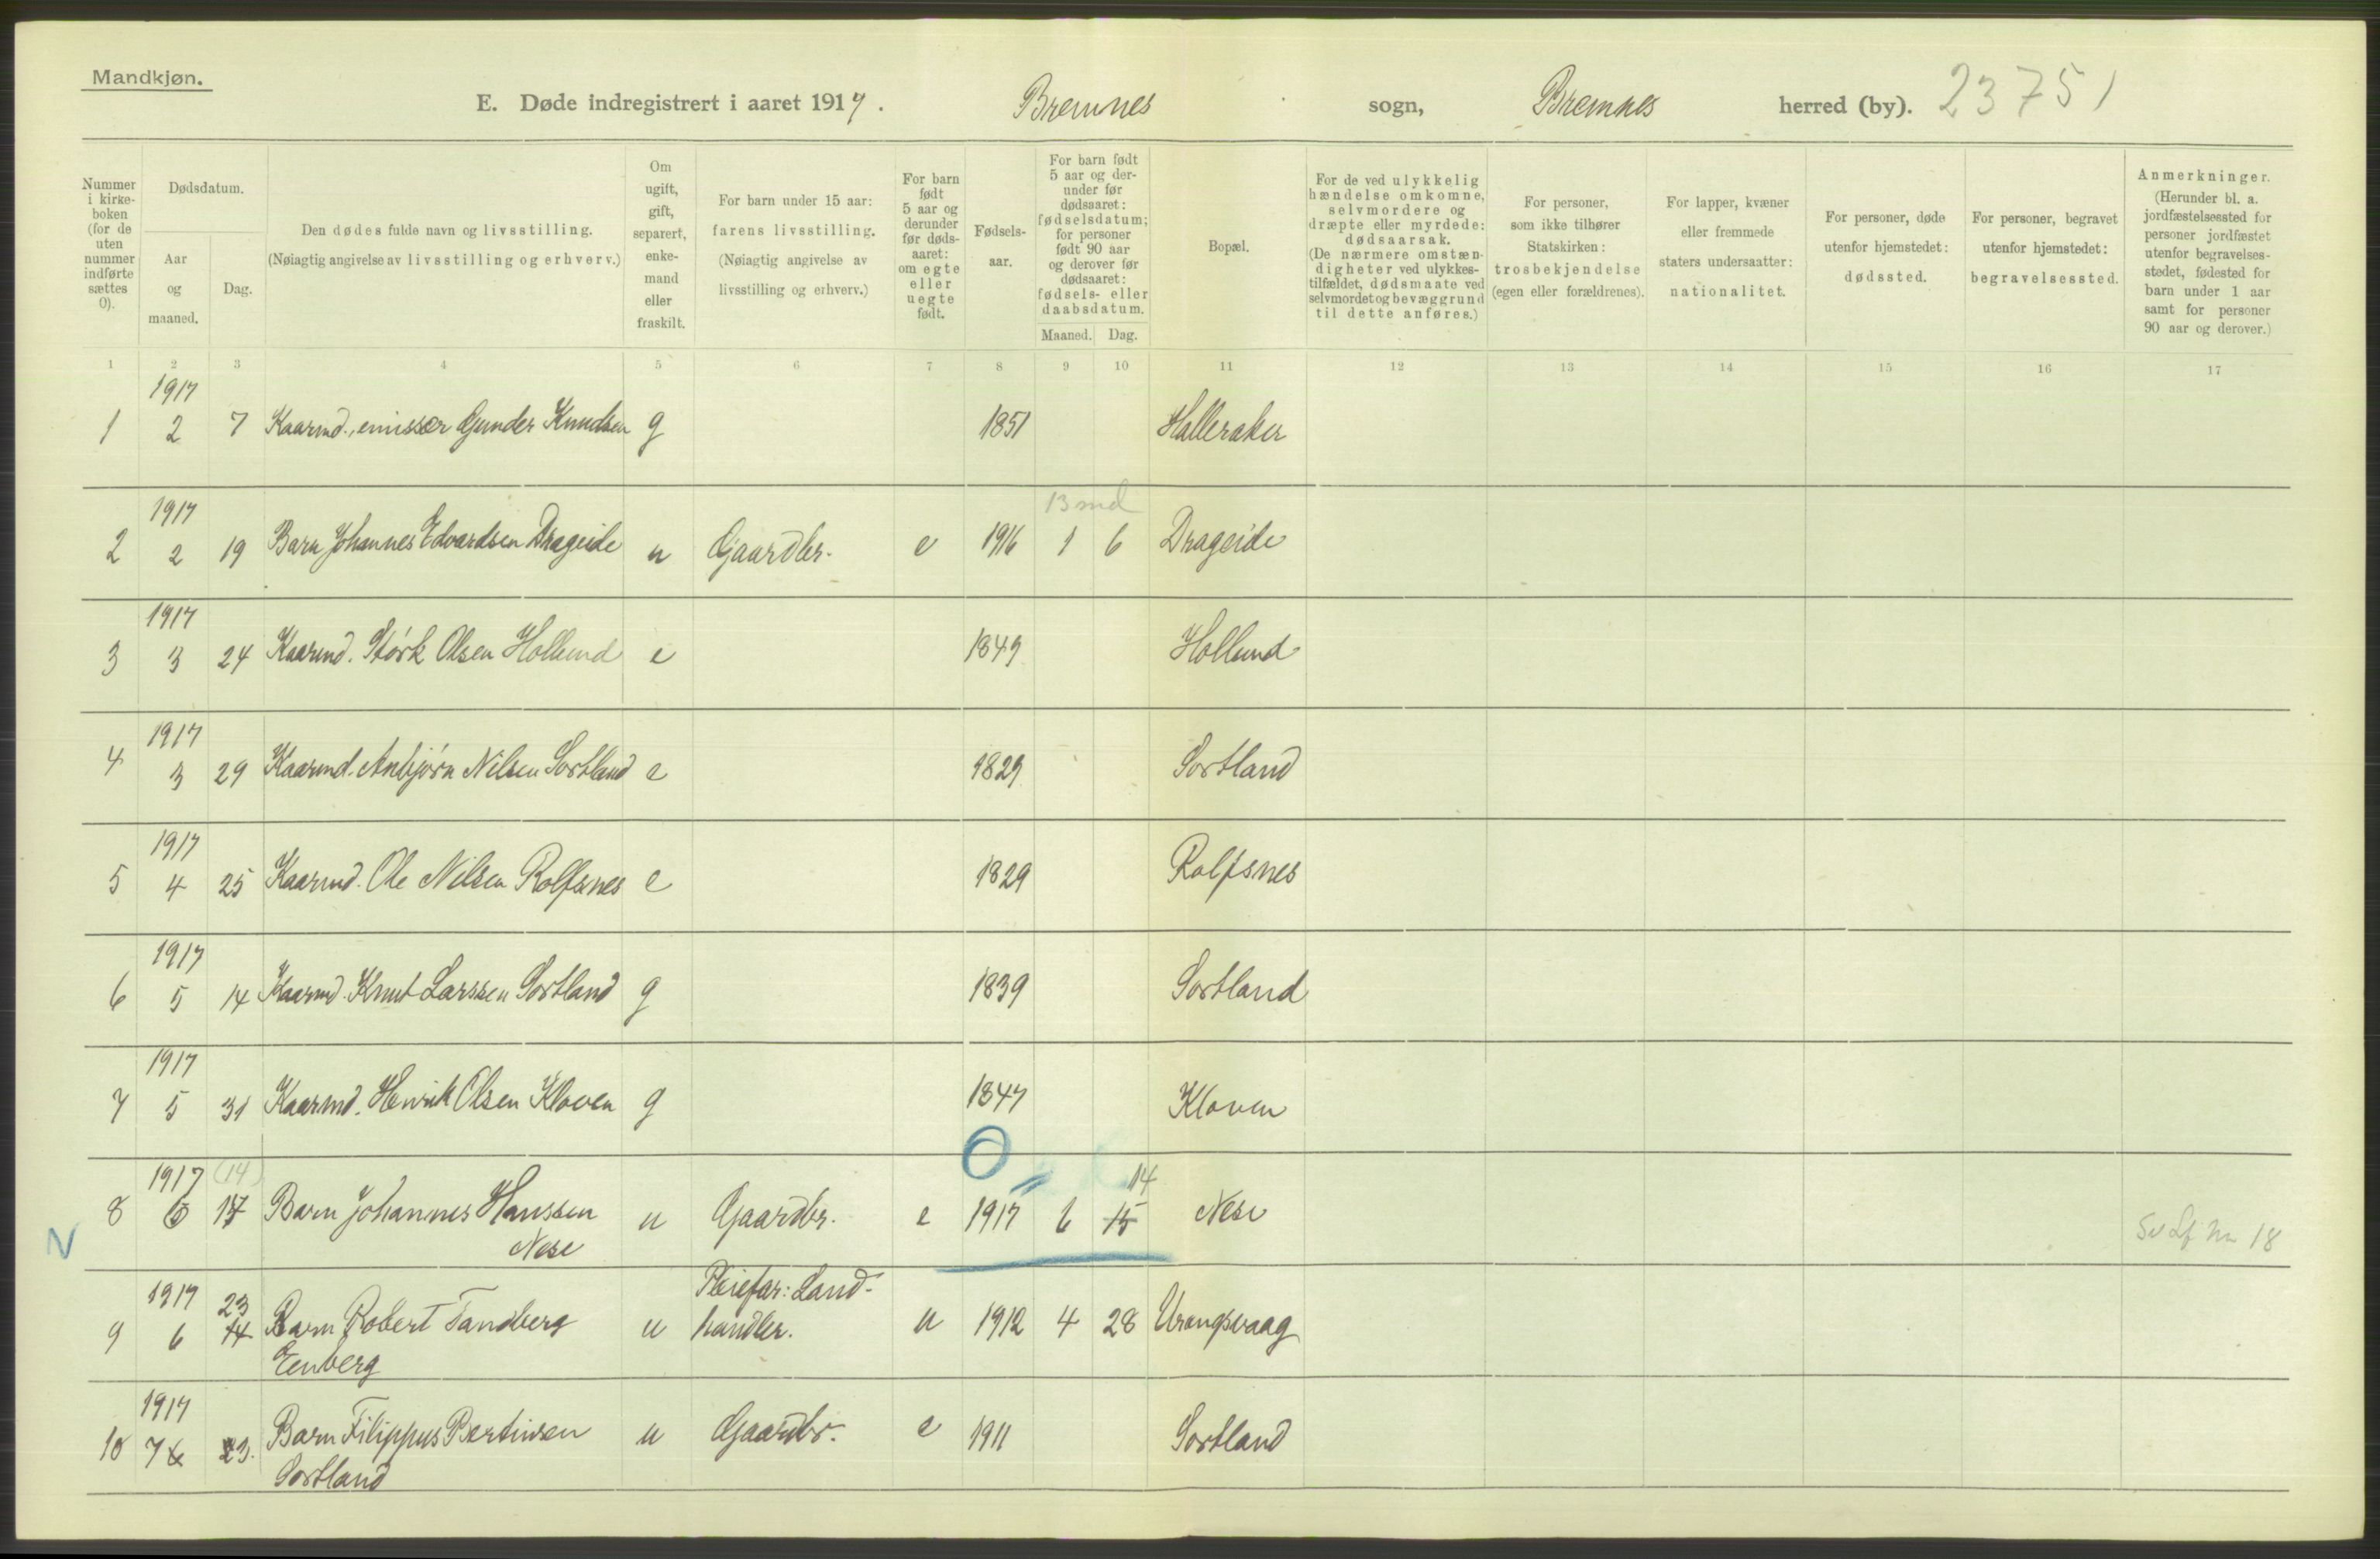 Mandkjøn.
E. Døde indregistrert i aaret 1917. Bremnes sogn, Bremnes herred (by). 23751
Nummer i kirkeboken (for de uten nummer indførte sættes 0).
Dødsdatum.
Aar og maaned.
Dag.
Den dødes fulde navn og livsstilling.
(Nøiagtig angivelse av livsstilling og erhverv.)
Om ugift, gift, separert, enkemand eller fraskilt.
For barn under 15 aar: farens livsstilling. (Nøiagtig angivelse av livsstilling og erhverv.)
For barn født 5 aar og derunder før dødsaaret: om egte eller uegte født.
Fødselsaar.
For barn født 5 aar og derunder før dødsaaret: fødselsdatum; for personer født 90 aar og derover før dødsaaret: fødsels- eller daabsdatum.
Maaned. Dag.
Bopæl.
For de ved ulykkelig hændelse omkomne, selvmordere og dræpte eller myrdede: dødsaarsak. (De nærmere omstændigheter ved ulykkestilfældet, dødsmaate ved selvmordet og bevæggrund til dette anføres.)
For personer, som ikke tilhører Statskirken: trosbekjendelse (egen eller forældrenes).
For lapper, kvæner eller fremmede staters undersaatter: nationalitet.
For personer, døde utenfor hjemstedet: dødssted.
For personer, begravet utenfor hjemstedet: begravelsessted.
Anmerkninger. (Herunder bl. a. jordfæstelsessted for personer jordfæstet utenfor begravelsesstedet, fødested for barn under 1 aar samt for personer 90 aar og derover.)
1 2 3 4 5 6 7 8 9 10 11 12 13 14 15 16 17
1917
1 2 7 Kaarmd., emissær Gunder Knudsen g 1851 Halleraker
1917 13 md
2 2 19 Barn Johannes Edvardsen Drageide u Gaardbr. e 1916 1 6 Drageide
1917
3 3 24 Kaarmd. Størk Olsen Hollund e 1849 Hollund
1917
4 3 29 Kaarmd. Anbjørn Nilsen Sortland e 1829 Sortland
1917
5 4 25 Kaarmd. Ole Nilsen Rolfsnes e 1829 Rolfsnes
1917
6 5 14 Kaarmd. Knut Larssen Sortland g 1839 Sortland
1917
7 5 31 Kaarmd. Henrik Olsen Kloven g 1847 Kloven
1917 (14) 0 14
8 6 Barn Johannes Hanssen u Gaardbr. e 1917 6 15 Nese
Nese 18
1917 23 Pleiefar: Land-
9 6 14 Barn Robert Tandberg u handler. u 1912 4 28 Urangsvaag
Eenberg
1917
10 7 23. Barn Filippus Bertinsen u Gaardbr. e 1911 Sortland
Sortland